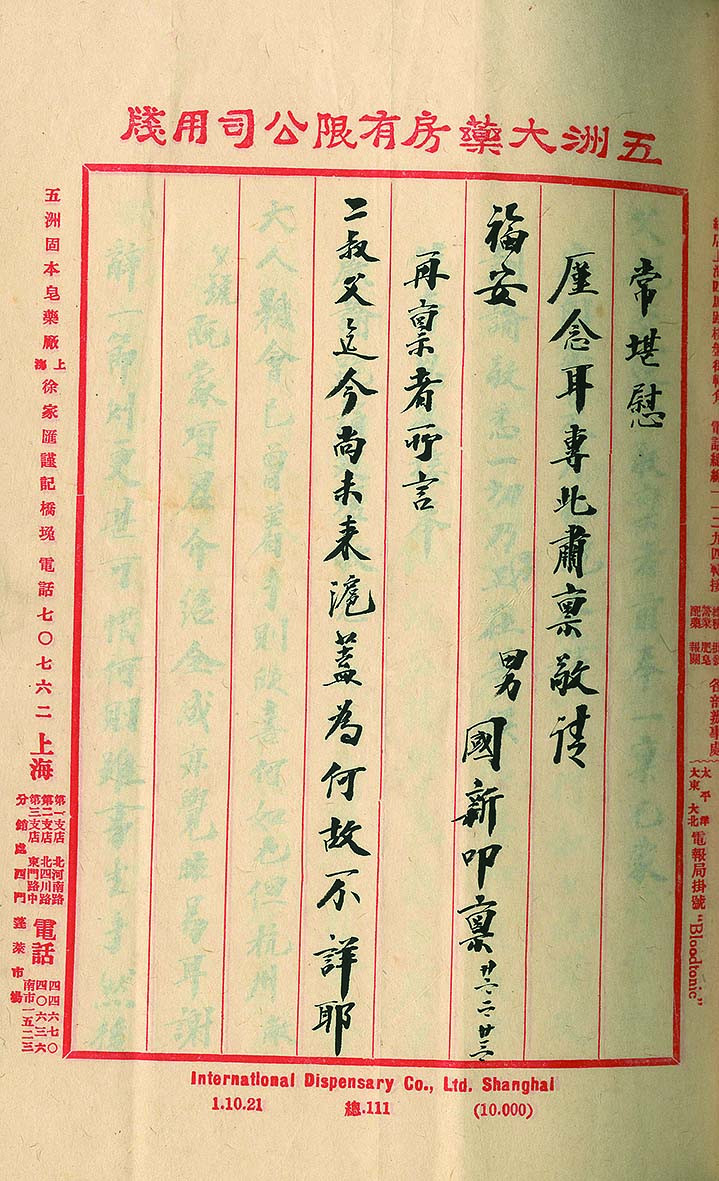 五洲大藥房有限公司用牋
常堪慰
廑念耳專此肅稟敬請
福安
男 國新叩稟 廿六·二·廿三
再稟者所言
二叔父迄今尚未來滬蓋為何故不詳耶
五洲固本皂藥廠 上海 徐家匯謹記橋堍 電話七〇七六二
上海
第一支店 北河南路
第二支店 北四川路
第三支店 東門路中
分館處 西門蓬萊市場
電話
四四六七〇
四〇六三六
南市一五二三
各部辦事處
太平洋
大東 大北
電報局掛號 "Bloodtonic"
International Dispensary Co., Ltd. Shanghai
1.10.21 總.111 (10.000)